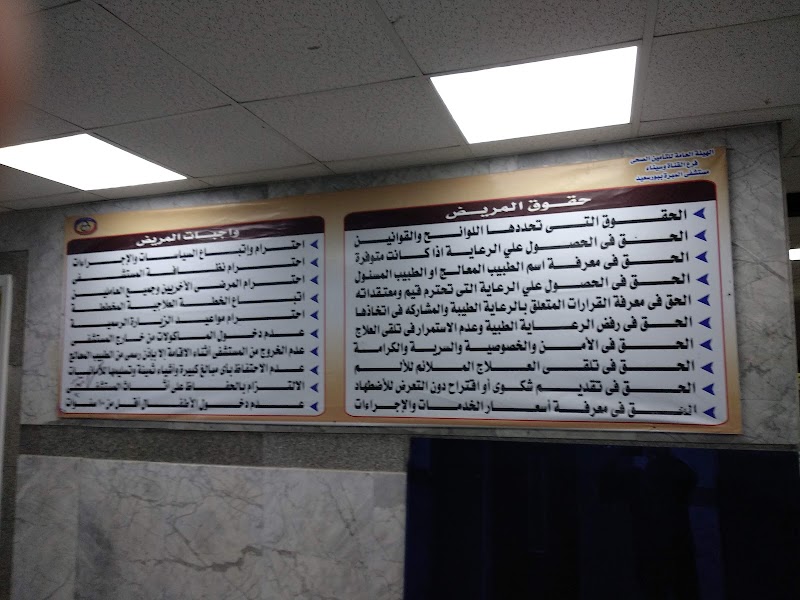 الهيئة العامة للتأمين الصحى
فرع القناة وسيناء
مستشفى المبرة ببورسعيد
حقوق المريض
الحقوق التى تحددها اللوائح والقوانين
الحق فى الحصول علي الرعاية اذا كانت متوفرة
الحق فى معرفة اسم الطبيب المعالج او الطبيب المسئول
الحق فى الحصول علي الرعاية التى تحترم قيم ومعتقداته
الحق فى معرفة القرارات المتعلق بالرعاية الطبية والمشاركه فى اتخاذها
الحق فى رفض الرعاية الطبية وعدم الاستمرار فى تلقى العلاج
الحق فى الأمن والخصوصية والسرية والكرامة
الحق فى تلقى العلاج الملائم للألم
الحق فى تقديم شكوى أو اقتراح دون التعرض للأضطهاد
الحق فى معرفة أسعار الخدمات والإجراءات
واجبات المريض
احترام وإتباع السياسات والإجراءات
احترام نظافة المستشفى
احترام المرضى الأخريين وجميع العاملين
اتباع الخطة العلاجية المخططة
احترام مواعيد الزيارة الرسمية
عدم دخول المأكولات من خارج المستشفى
عدم الخروج من المستشفى أثناء الاقامة إلا بأذن رسمى من الطبيب المعالج
عدم الاحتفاظ بأى مبالغ كبيرة وأشياء ثمينة وتسليمها للأمانات
الالتزام بالحفاظ على أثاث المستشفى
عدم دخول الأطفال أقل من ١٠ سنوات